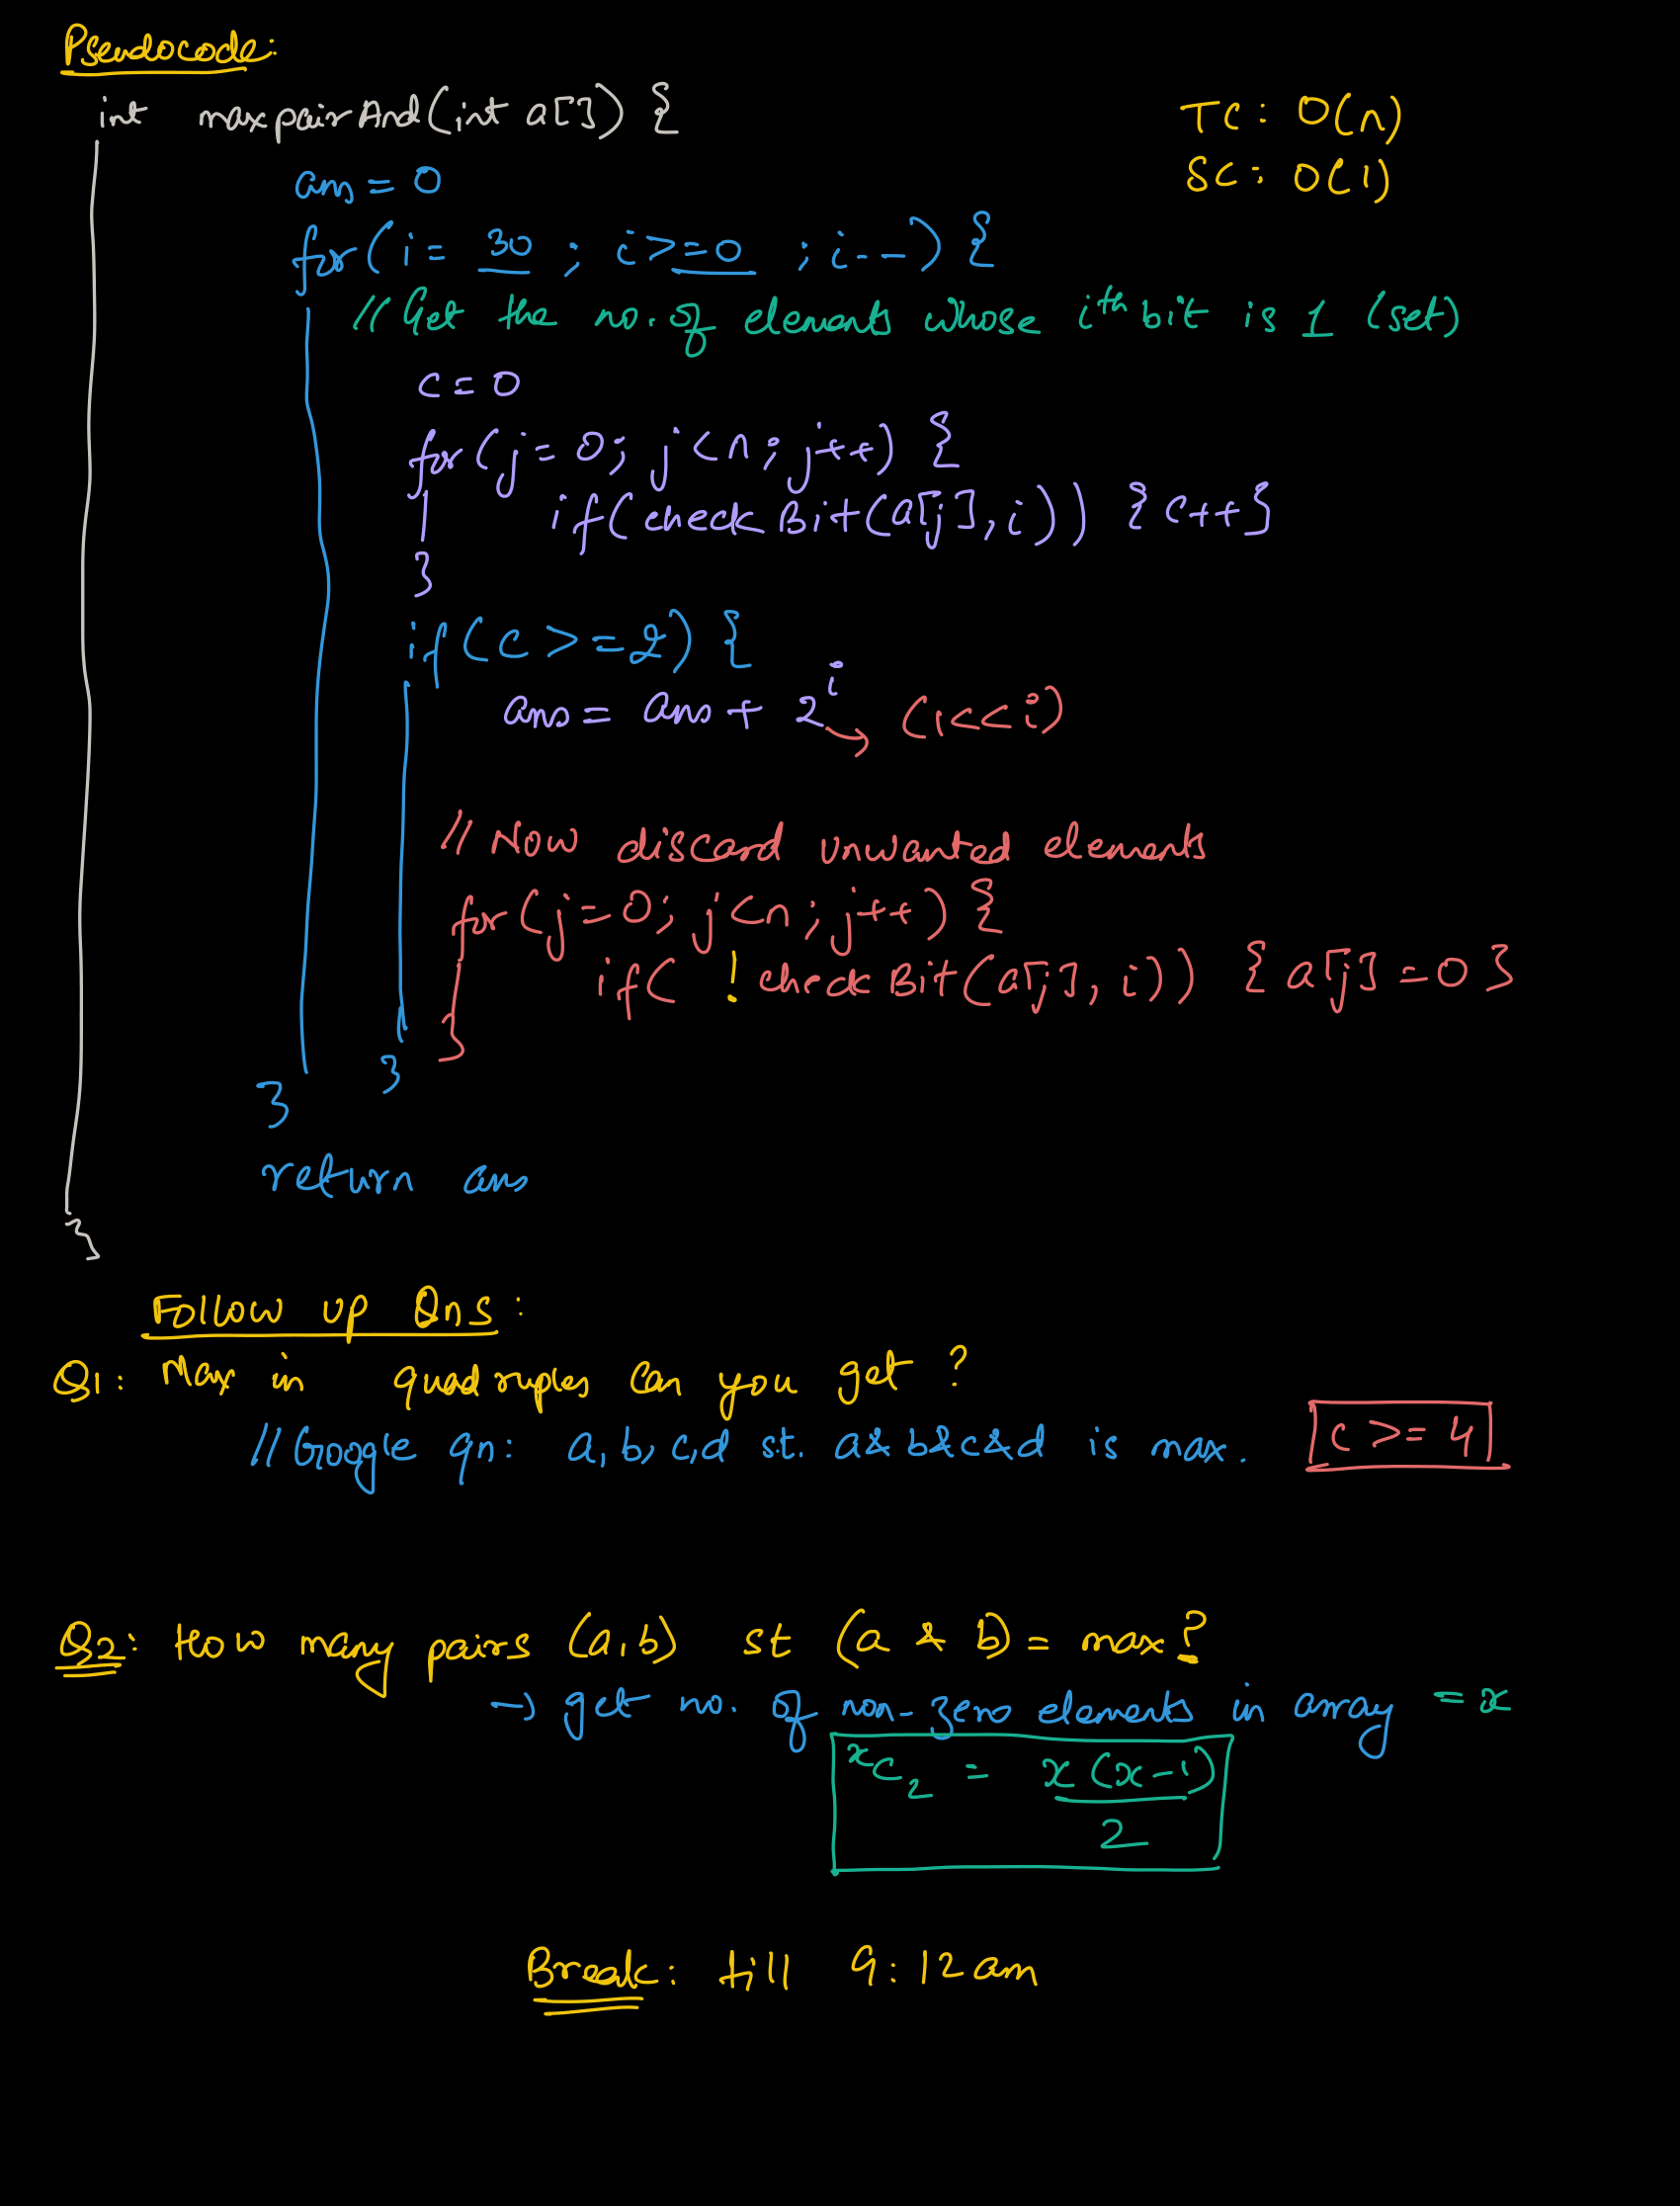 Pseudocode:
int maxpairAnd(int a[]) {
TC: O(n)
SC: O(1)
ans = 0
for(i= 30 ; i>=0 ; i--) {
// Get the no. of elements whose ith bit is 1 (set)
c = 0
for(j= 0; j<n; j++) {
if(checkBit(a[j], i)) { c++}
}
if(c >=2) {
ans= ans + 2^i → (1<<i)
// Now discard unwanted elements
for(j=0; j<n; j++) {
if( ! checkBit(a[j], i)) { a[j] =0 }
}
}
}
return ans
}
Follow up Qns :
Q1: Max in quadruples can you get ?
// Google qn: a, b, c,d st. a& b&c&d is max. c >= 4
Q2: How many pairs (a,b) st (a & b) = max?
→ get no. of non-zero elements in array = x
xC2 = x (x-1)
2
Break: till 9:12am